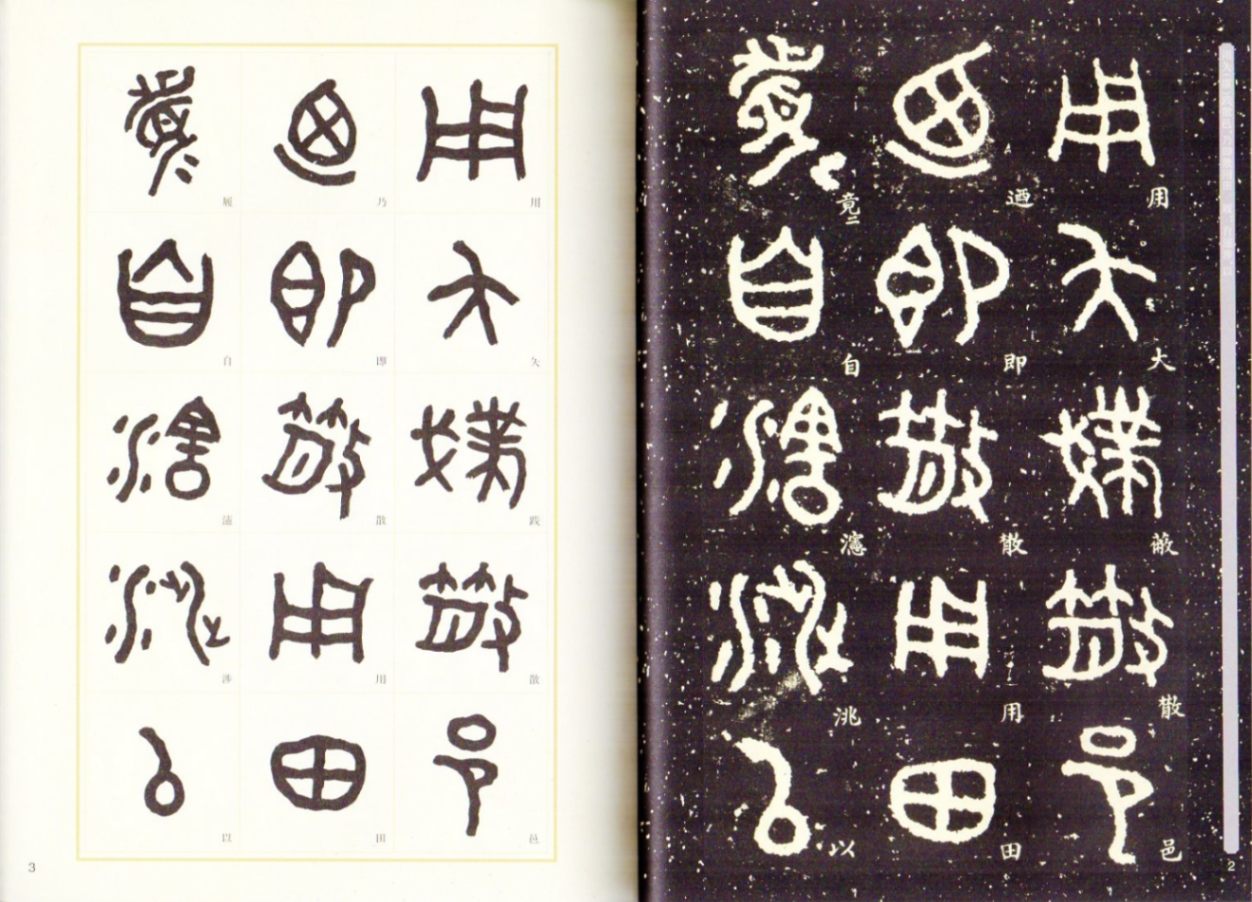 用大蔽散邑
迺即散用田
竟二自瀗洮以
2
用矢践散邑
乃即散用田
履自涉以
3